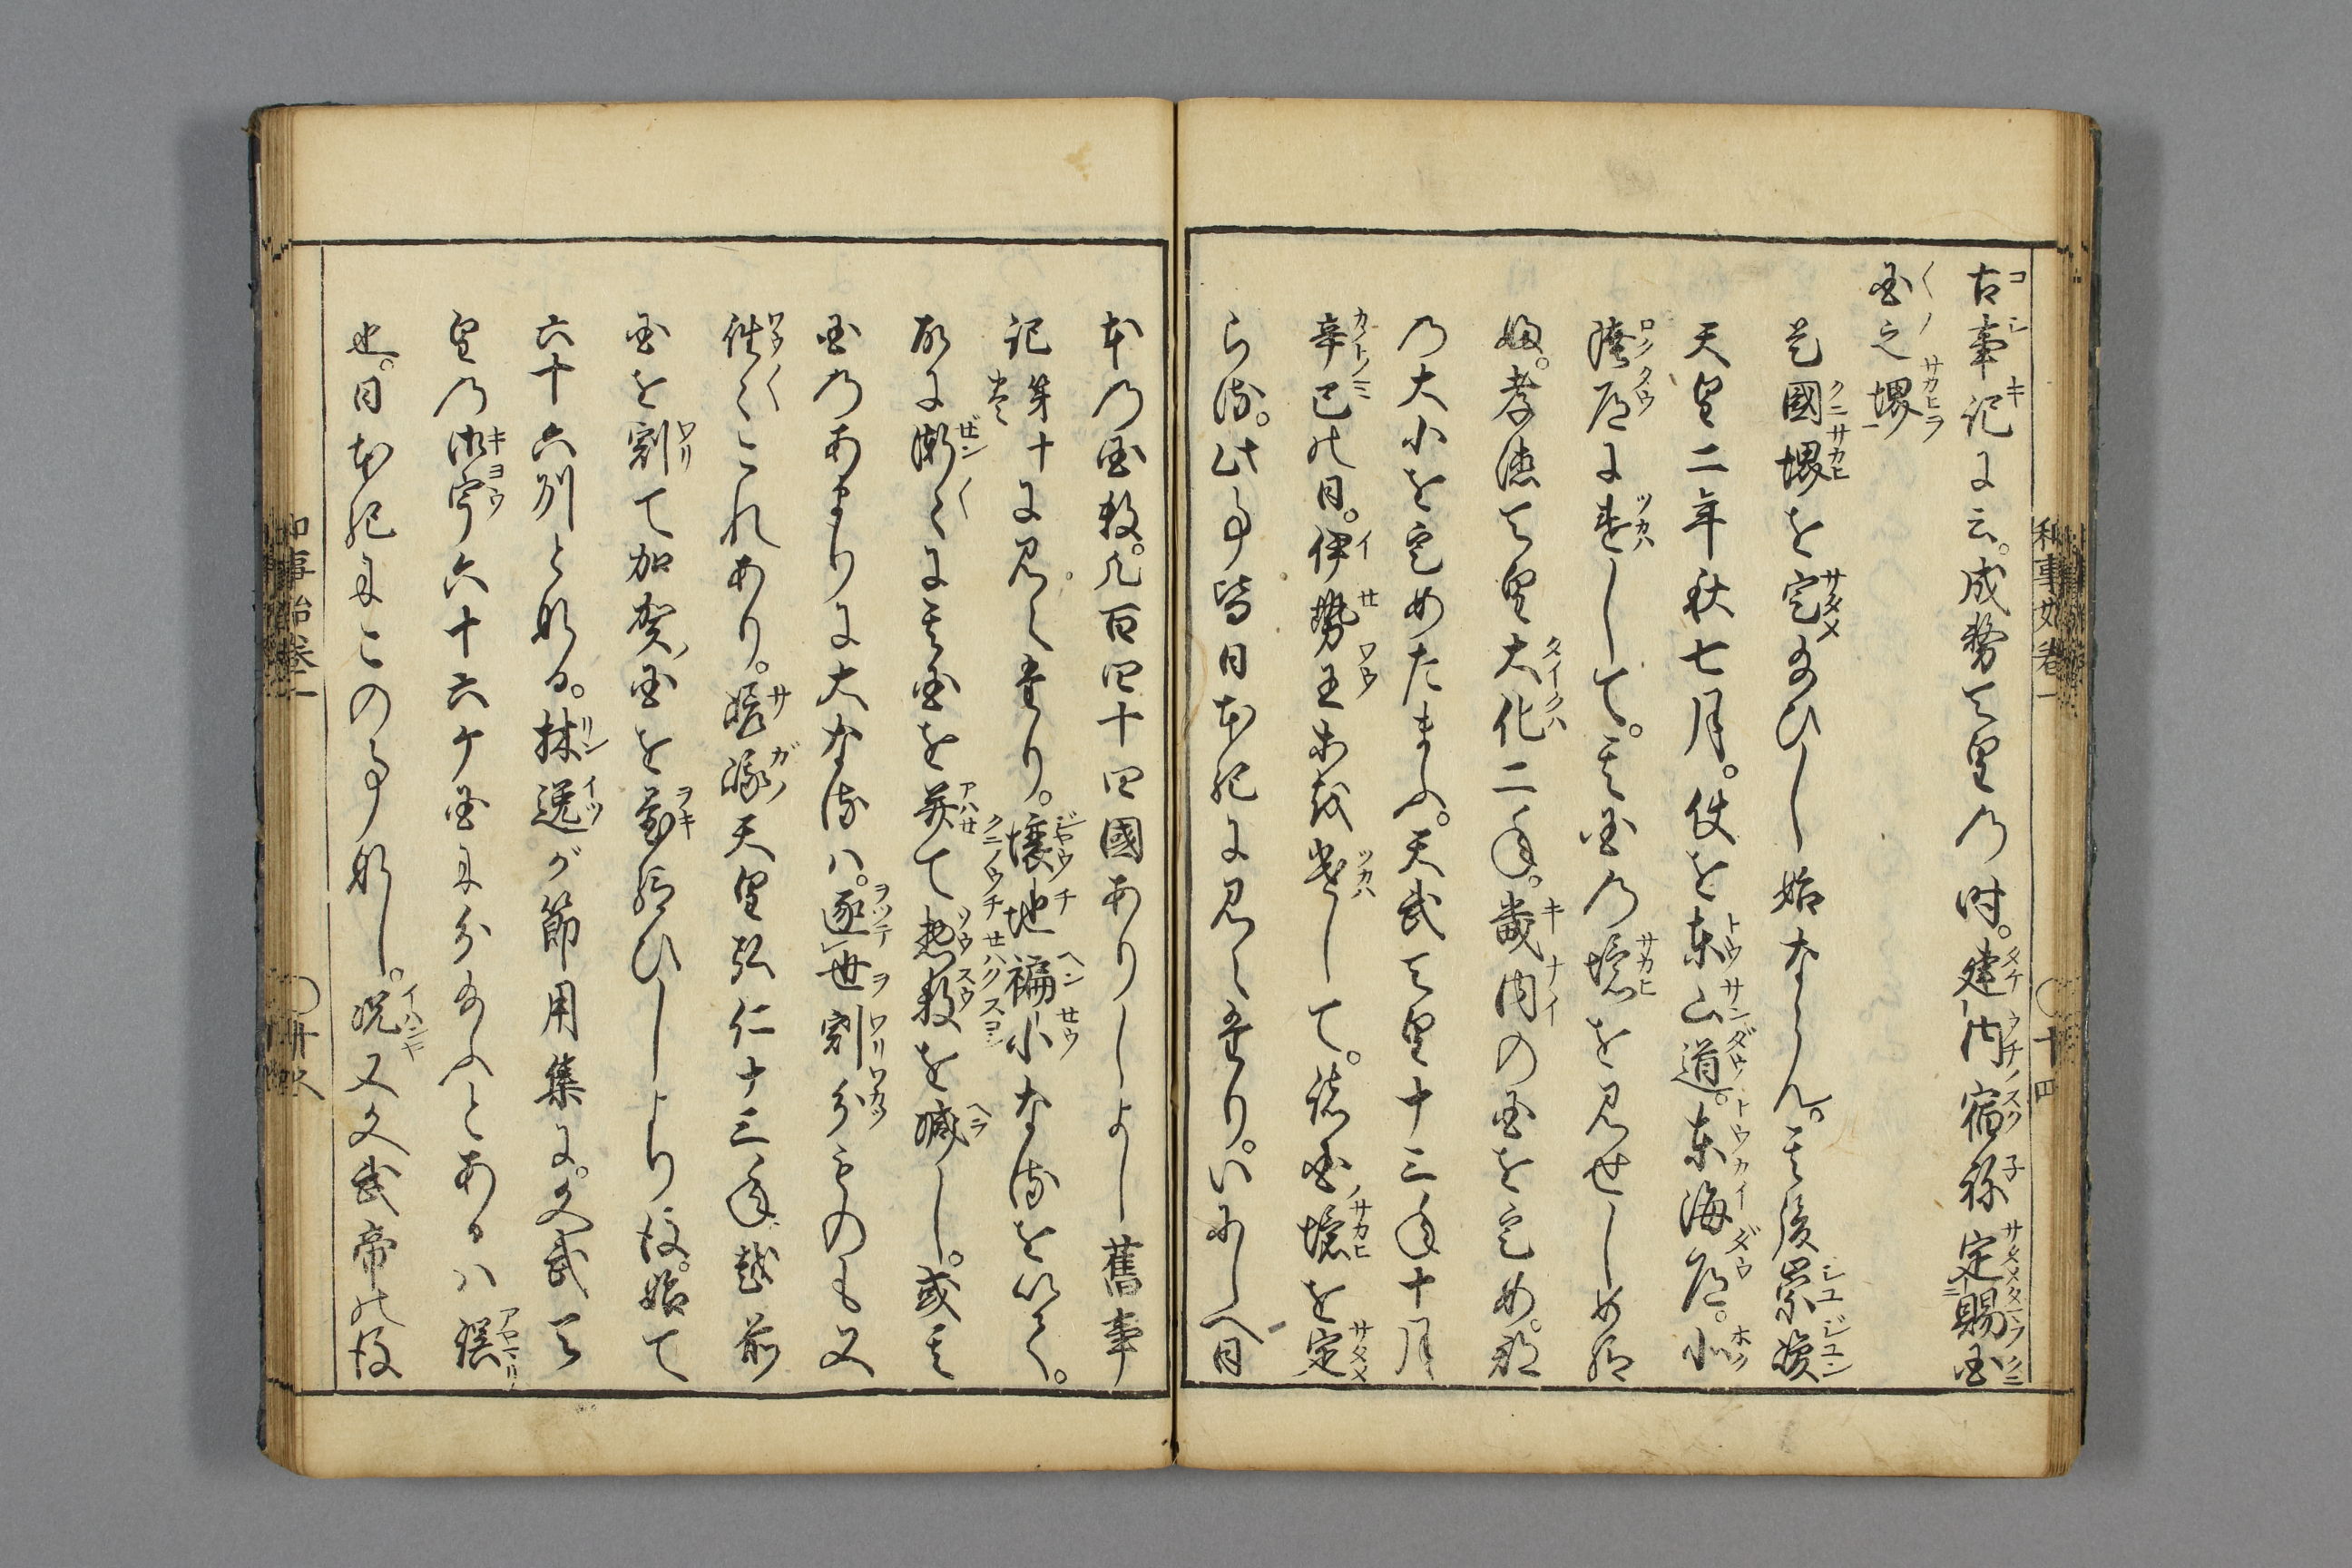 古事記に云。成務天皇の時。建内宿祢定賜国
国之堺
是國堺を定給ひし始ならん。其後崇峻
天皇二年秋七月。使を東山道。東海道。北
陸道に遣して。其国の境を見せしめ給
ふ。孝徳天皇大化二年。畿内の国を定め。郡
の大小を定めたまふ。天武天皇十三年十月
辛巳の日。伊勢王等を遣して。諸国ノ境を定
らる。此事皆日本紀に見えたり。いにしへ日
本の国数。凡百四十四國ありしよし舊事
記第十に見えたり。壌地褊小なるを以て。
故に漸〻に其国を并て惣数を減し。或其
国のあまりに大なるハ。逐世割分ものも又
往〻これあり。嵯峨天皇弘仁十三年越前
国を割て加賀国を置給ひしより後。始て
六十六州と成る。林逸が節用集に。文武天
皇の御宇六十六ケ国に分給ふとあるハ誤
也。日本紀にこの事なし。況又文武帝の後
和事始巻一
十四